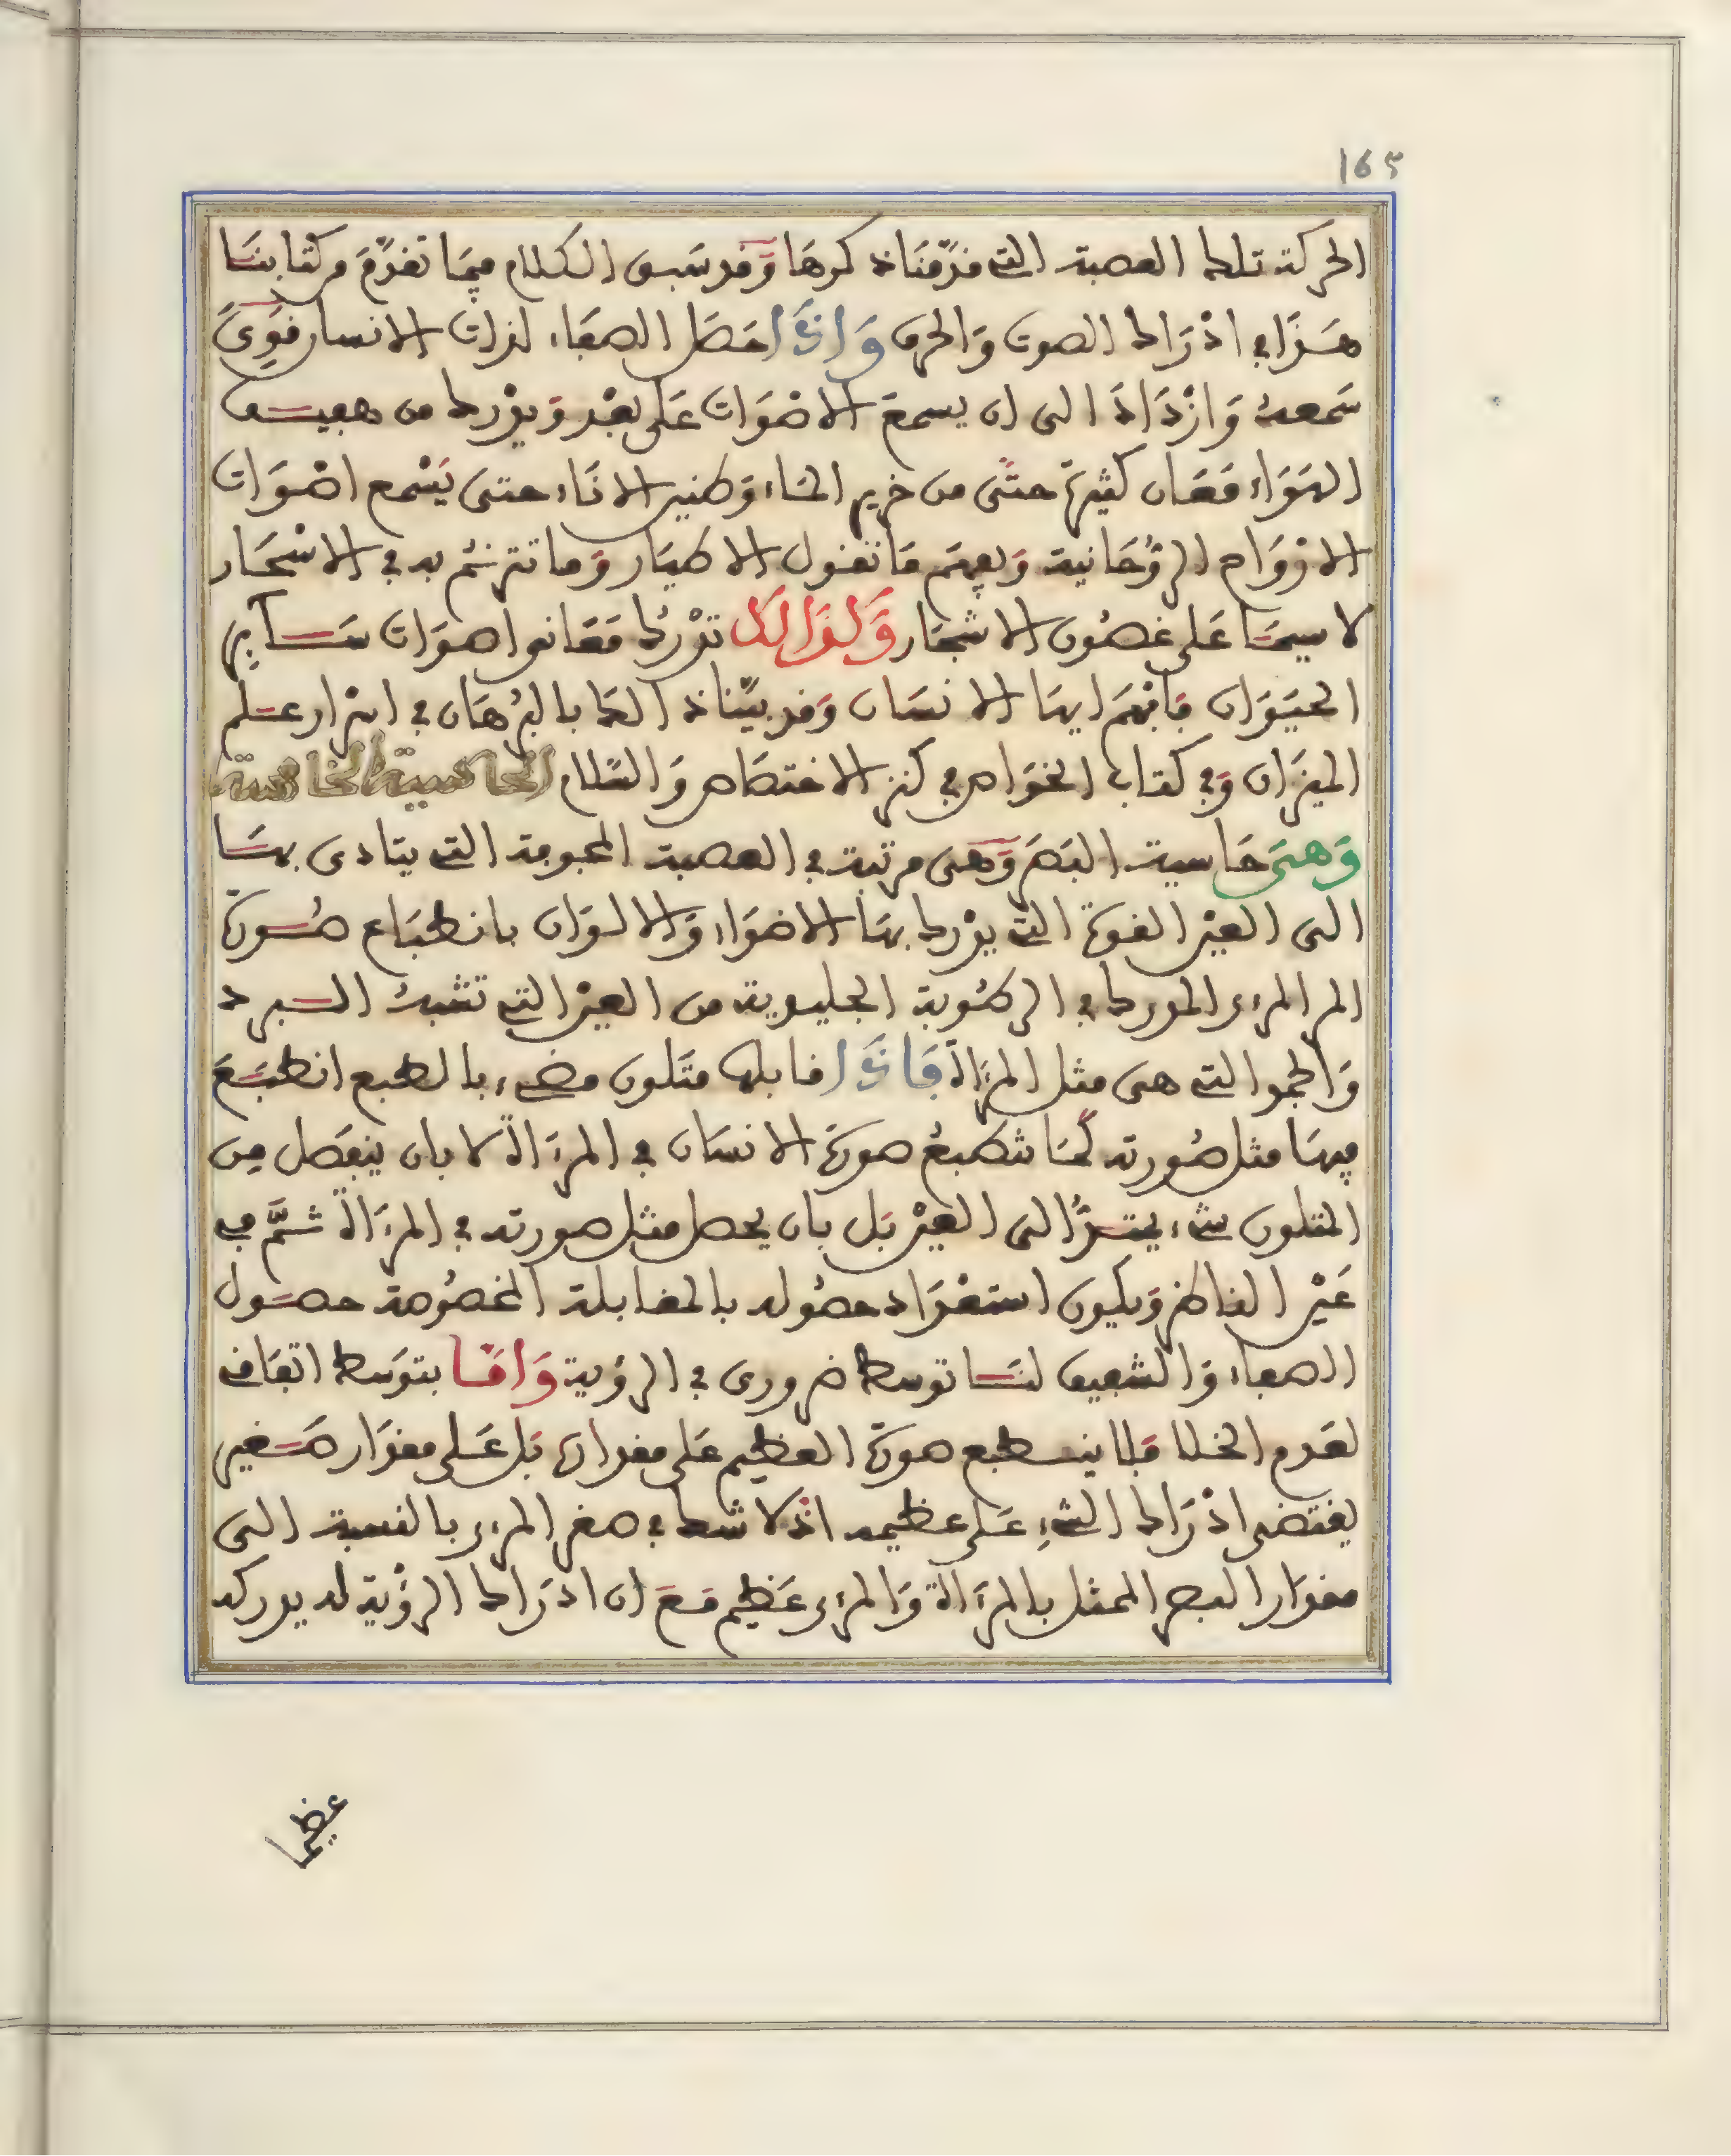 165
الحركة تلك العصبة التي قدّمنا ذكرها وقد سبق الكلام فيما تقدّم من كتابنا
هذا في ادراك الصوت والحرف واذا حصل الصفاء لذات الانسان قوي
سمعه وازداد الى ان يسمع الاصوات على بعد ويدرك من هفيف
الهواء معان كثيرة حتّى من خرير الماء وطنين الاناء حتى يسمع اصوات
الارواح الرّوحانية ويفهم ما تقول الاطيار وما تترنّم به في الاسحار
لا سيما على غصون الاشجار وكذالك تدرك معاني اصوات سـاير
الحيوان فافهم ايها الانسان وقد بيّنا ذالك بالبرهان في اسرار علم
الميزان وفي كتاب الخواص في كنز الاختصاص والسّلام الحاسية الخامسة
وهي حاسية البصر وهي مرتبة في العصبة المجوفة التي يتادى بها
الى العين القوة التي يدرك بها الاضواء والالوان بانطباع صورة
المر المرءى المدرك في الركوبة الجليدية من العين التي تشبه البرد
والجمد التي هي مثل المرءاة فاذا قابلها متلون مضيء بالطبع انطبع
فيها مثل صورته كما تنطبع صورة الانسان في المرءاة لا بان ينفصل من
المتلون شيء يمتدّ الى العين بل بان يحصل مثل صورته في المرءاة ثمّ في
عين الناظر ويكون استعداد حصوله بالمقابلة المخصوصة حصول
الصفاء والشفيف لنا توسط ضروري في الرؤية واما بتوسط اتفاق
لعدم الخلا فلا ينطبع صورة العظيم على مقدارها بل على مقدار صغير
يقتضي ادراك الشيء على عظيمه اذ لا شك في صغر المرءى بالنسبة الى
مقدار البصر الممثل بالمرءاة والمرءى عظيم مع ان ادراك الرؤية له يدركه
عظيما